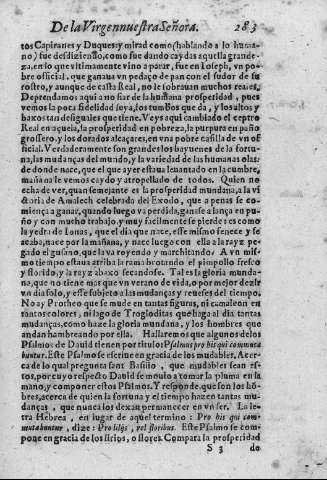 De la Virgen nuestra Señora. 283
tos Capitanes y Duques: y mirad como (hablando a lo huma-
no) fue desdiziendo, como fue dando caydas aquella grande-
za, en lo que vltimamente vino a parar, fue en Ioseph, vn po-
bre official, que ganaua vn pedaço de pan con el sudor de su
rostro, y aunque de casta Real, no le sobrauan muchos reales.
Deprendamos aqui a no fiar de la humana prosperidad, pues
vemos la poca fidelidad suya, los tumbos que da, y los altos y
baxos tan desiguales que tiene. Veys aqui cambiado el ceptro
Real en açuela, la prosperidad en pobreza, la purpura en paño
grossero, y los dorados alcaçares, en vna pobre casilla de vn of
ficial. Verdaderamente son grandes los bayuenes de la fortu-
na, las mudanças del mundo, y la variedad de las humanas olas:
de donde nace, que el que ayer estaua leuantado en la cumbre,
mañana le vemos caydo y atropellado de todos. Quien no
echa de ver, quan semejante es la prosperidad mundana, a la vi
ctoria de Amalech celebrada del Exodo, que a penas se co-
miença a ganar, quando luego va perdida, ganase a lança en pu-
ño y con mucho trabajo, y muy facilmente se pierde: es como
la yedra de Ionas, que el dia que nace, esse mismo fenece y se
acaba, nace por la mañana, y nace luego con ella a la rayz pe-
gado el gusano, que la va royendo y marchitando: A vn mis-
mo tiempo estaua arriba la rama brotando el pimpollo fresco
y florido, y la rayz abaxo secandose. Tal es la gloria munda-
na, que no tiene mas que vn verano de vida, o por mejor dezir
vn dia solo, y esse subjeto a las mudanças y reueses del tiempo.
No ay Protheo que se mude en tantas figuras, ni camaleon en
tantos colores, ni lago de Trogloditas que haga al dia tantas
mudanças, como haze la gloria mundana, y los hombres que
andan hambreando por ella. Hallaremos que algunos de los
Psalmos de David tienen por titulo: Psalmus pro his qui commuta
buntur. Este Psalmo se escriue en gracia de los mudables. Acer-
ca de lo qual pregunta sant Basilio, que mudables sean es-
tos, por cuyo respecto Dauid se mouio a tomar la pluma en la
mano, y componer estos Psalmos. Y responde, que son los hõ-
bres, acerca de quien la fortuna y el tiempo hazen tantas mu-
danças, que nunca los dexan permanecer en vn ser. La le-
tra Hebrea, en lugar de aquel termino: Pro his qui com-
mutabuntur, dize: Pro lilijs, vel floribus. Este Psalmo se com-
pone en gracia de los lirios, o flores. Compara la prosperidad
S 3 do